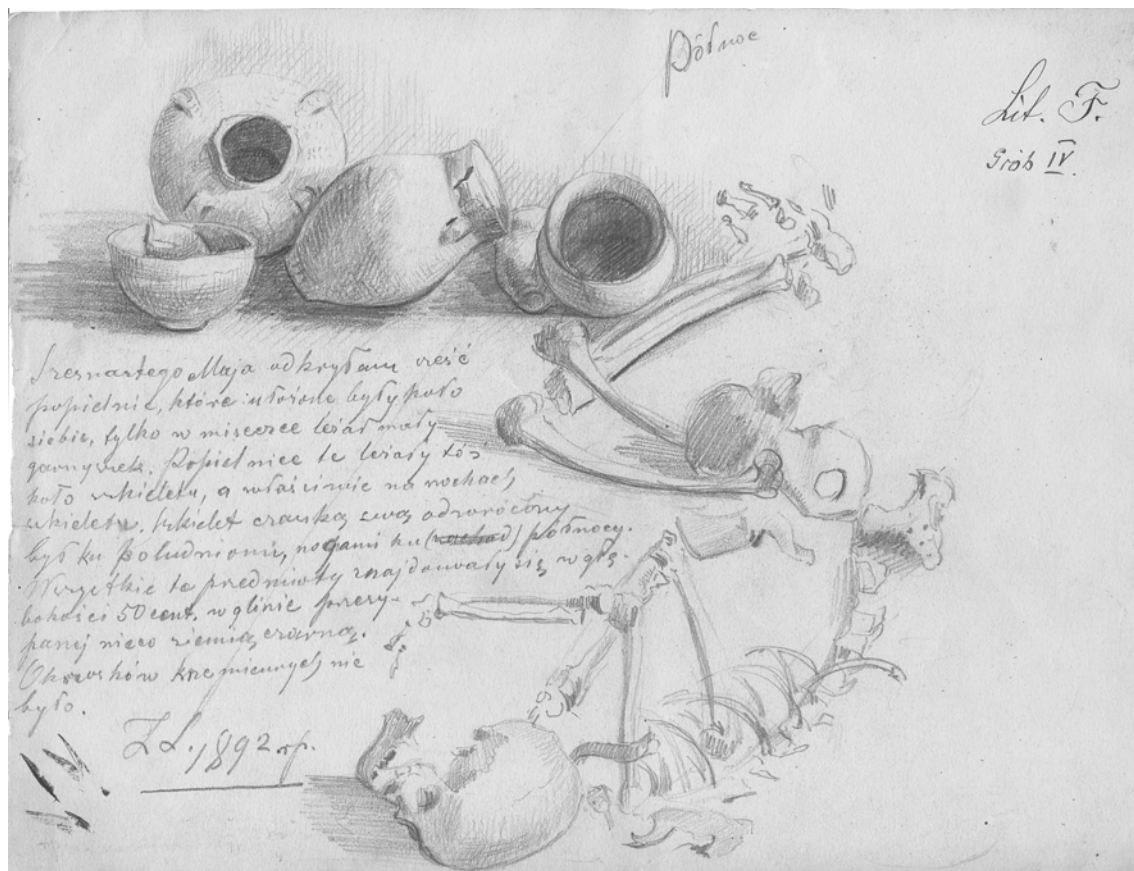 Północ
Lit. F.
Grób IV.
Szesnastego Maja odkryłam cześć
popielnic, które ułożone były koło
siebie, tylko w miseczce leżał mały
garnyszek. Popielnice te leżały tóż
koło szkieletu, a właściwie na nochach
szkieletu. Szkielet czaszką swą odwrócony
był ku południowi, nogami ku (wschod) północy.
Wszystkie te przedmioty znajdowały się w głę-
bokości 50 cent. w glinie przesy-
panej nieco ziemią czarną.
Okrusków krzemiennych nie
było.
Z L. 1892 r.